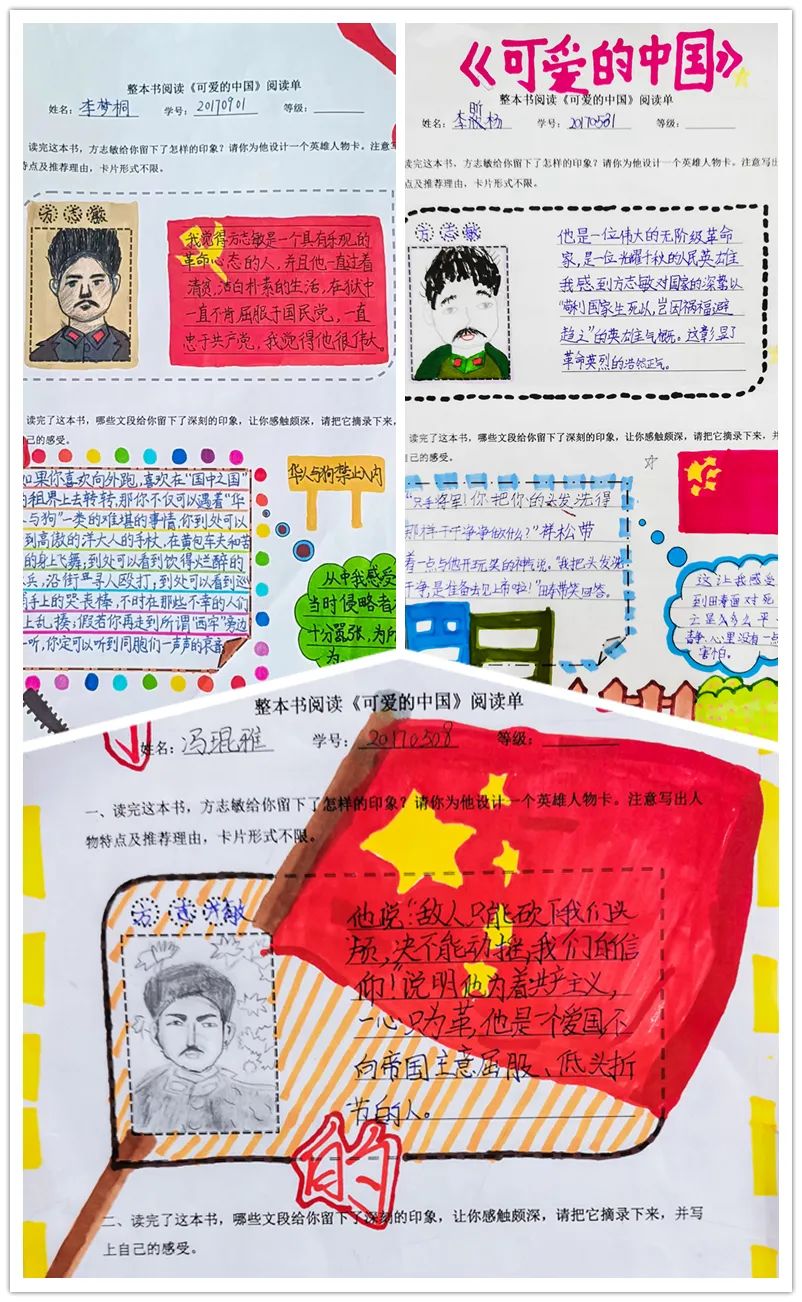 整本书阅读《可爱的中国》阅读单
姓名：李梦桐 学号：20170901 等级：
读完这本书，方志敏给你留下了怎样的印象？请你为他设计一个英雄人物卡。注意写
特点及推荐理由，卡片形式不限。
方志敏
我觉得方志敏是一个具有乐观的
革命心态的人，并且他一直过着
清贫，洁白朴素的生活，在狱中
一直不肯屈服于国民党，一直
忠于共产党，我觉得他很伟大。
读完了这本书，哪些文段给你留下了深刻的印象，让你感触颇深，请把它摘录下来，
己的感受。
如果你喜欢向外跑，喜欢在“国中之国”
的租界上去转转，那你不仅可以遇着“华
人与狗”一类的难堪的事情，你到处可以
到高傲的洋大人的手杖，在黄包车夫和苦
的身上飞舞，到处可以看到饮得烂醉的
兵，沿街寻人殴打，到处可以看到巡
手上的哭丧棒，不时在那些不幸的人们
上乱揍，假若你再走到所谓“西牢”旁边
听，你定可以听到同胞们一声声的哀音
华人与狗禁止入内
从中我感受
当时侵略者
十分嚣张，为所
为
《可爱的中国》
整本书阅读《可爱的中国》阅读单
姓名：李昕杨 学号：20170531 等级：
读完这本书，方志敏给你留下了怎样的印象？请你为他设计一个英雄人物卡。注意写出
点及推荐理由，卡片形式不限。
方志敏
他是一位伟大的无阶级革命
家，是一位光耀千秋的人民英雄
我感到方志敏对国家的深挚以
“苟利国家生死以，岂因祸福避
趋之”的英雄主气概。这彰显了
革命英烈的浩然正气。
读完了这本书，哪些文段给你留下了深刻的印象，让你感触颇深，请把它摘录下来，并
己的感受。
“只手将军！你把你的头发洗得
那样干干净净做什么？”祥松带
着一点与他开玩笑的神气说。“我把头发洗
干净，是准备去见上帝啦！”田寿带笑回答。
这让我感受
到田寿面对死
亡是多么平
静，心里没有一点
害怕。
整本书阅读《可爱的中国》阅读单
姓名：冯琨雅 学号：20170508 等级：
一、读完这本书，方志敏给你留下了怎样的印象？请你为他设计一个英雄人物卡。注意写出人
物特点及推荐理由，卡片形式不限。
方志敏
他说“敌人只能砍下我们头
颅，决不能动摇，我们的信
仰！”说明他为着共产主义，
一心只为革，他是一个爱国不
向帝国主意屈服、低头折
节的人。
的
二、读完了这本书，哪些文段给你留下了深刻的印象，让你感触颇深，请把它摘录下来，并写
上自己的感受。